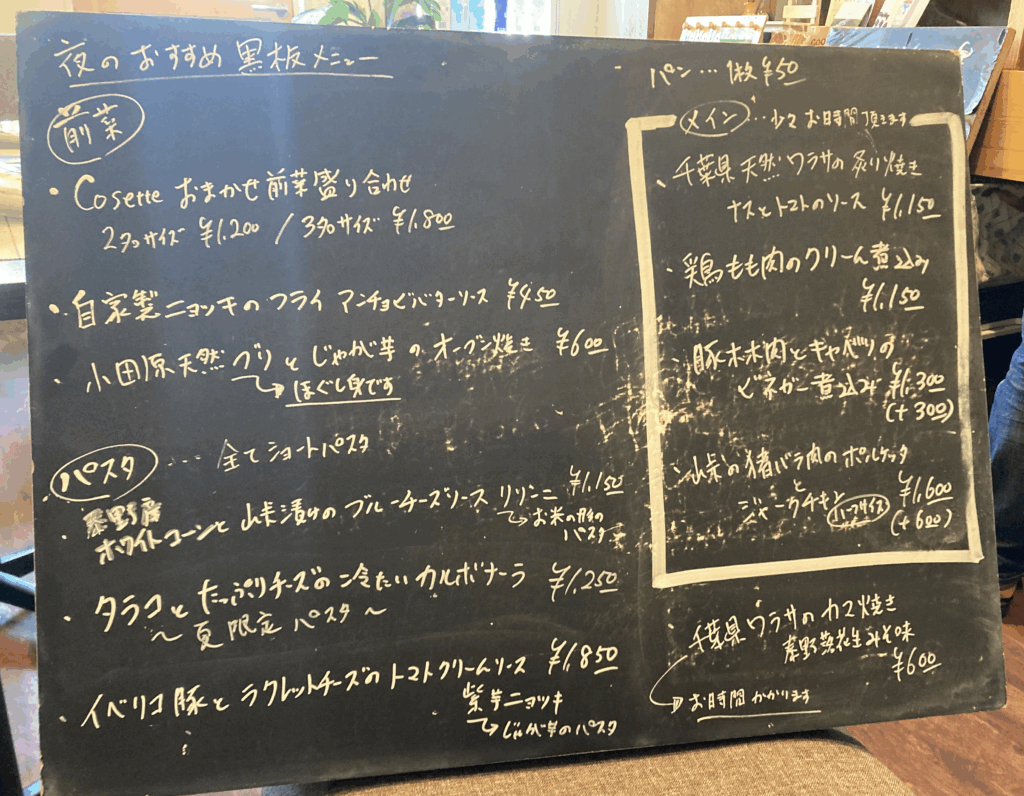 夜のおすすめ 黒板メニュー
前菜
・Cosette おまかせ前菜盛り合わせ
2名サイズ ¥1,200 / 3名サイズ ¥1,800
・自家製ニョッキのフライ アンチョビバターソース ¥450
・小田原天然ブリとじゃが芋のオーブン焼き ¥600
↳ほぐし身です
パスタ … 全てショートパスタ
秦野産
ホワイトコーンと山椒漬けのブルーチーズソース リゾーニ ¥1,150
↳お米の形の
パスタ
・タラコとたっぷりチーズの冷たいカルボナーラ ¥1,250
〜夏限定パスタ〜
・イベリコ豚とラクレットチーズのトマトクリームソース ¥1,850
紫芋ニョッキ
↳じゃが芋のパスタ
パン… 1枚 ¥50
メイン … 少々お時間頂きます
・千葉県天然ワラサの炙り焼き
ナスとトマトのソース ¥1,150
・鶏もも肉のクリーム煮込み
¥1,150
・豚ホホ肉とキャベツの
ビネガー煮込み ¥1,300
(+300)
・山椒の猪バラ肉のポルケッタ
と
ジャークチキン ハーフサイズ ¥1,600
(+600)
・千葉県ワラサのカマ焼き
秦野落花生みそ味
¥600
→お時間かかります